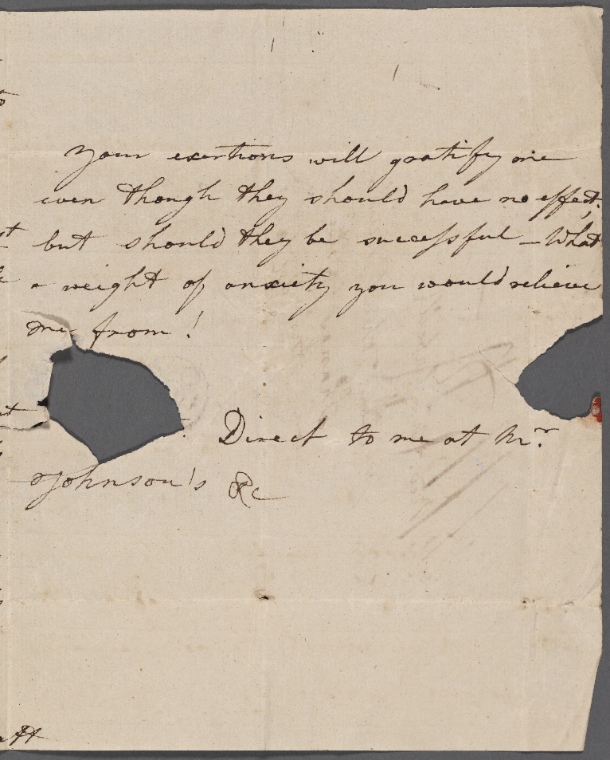 Your exertions will gratify me
even though they should have no effect;
but should they be successful – What
a weight of anxiety you would relieve
me from!
Direct to me at Mr.
Johnson's &c